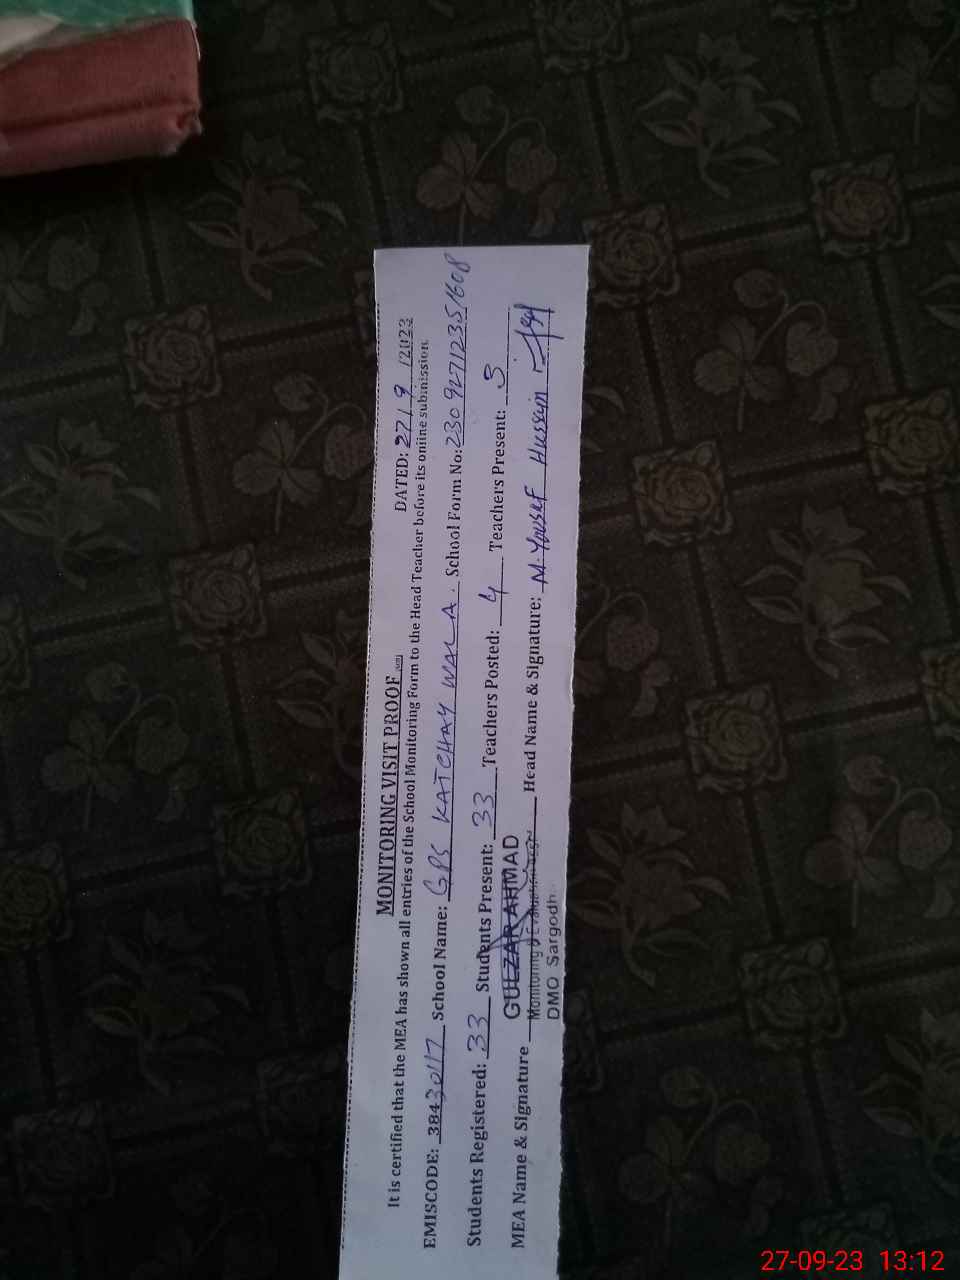 MONITORING VISIT PROOF
DATED: 27/9/2023
It is certified that the MEA has shown all entries of the School Monitoring Form to the Head Teacher before its online submission.
EMISCODE: 38430117 School Name: GPS KATCHAY WALA. School Form No: 23092712351608
Students Registered: 33 Students Present: 33 Teachers Posted: 4 Teachers Present: 3
MEA Name & Signature GULZAR AHMAD Head Name & Signature: M. Yousef Hussain
Monitoring & Evaluation
DMO Sargodh
27-09-23 13:12